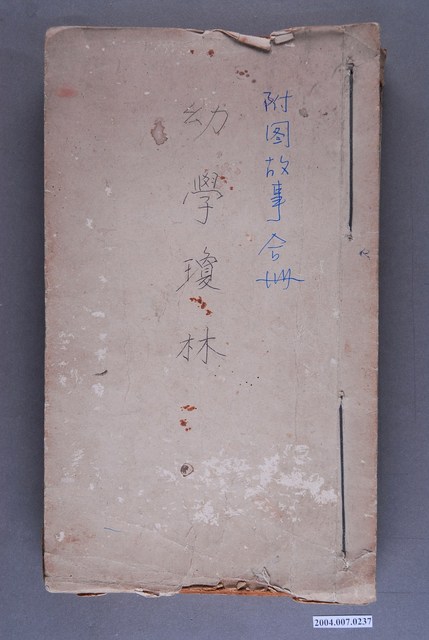 附图故事合册
幼學瓊林
2004.007.0237